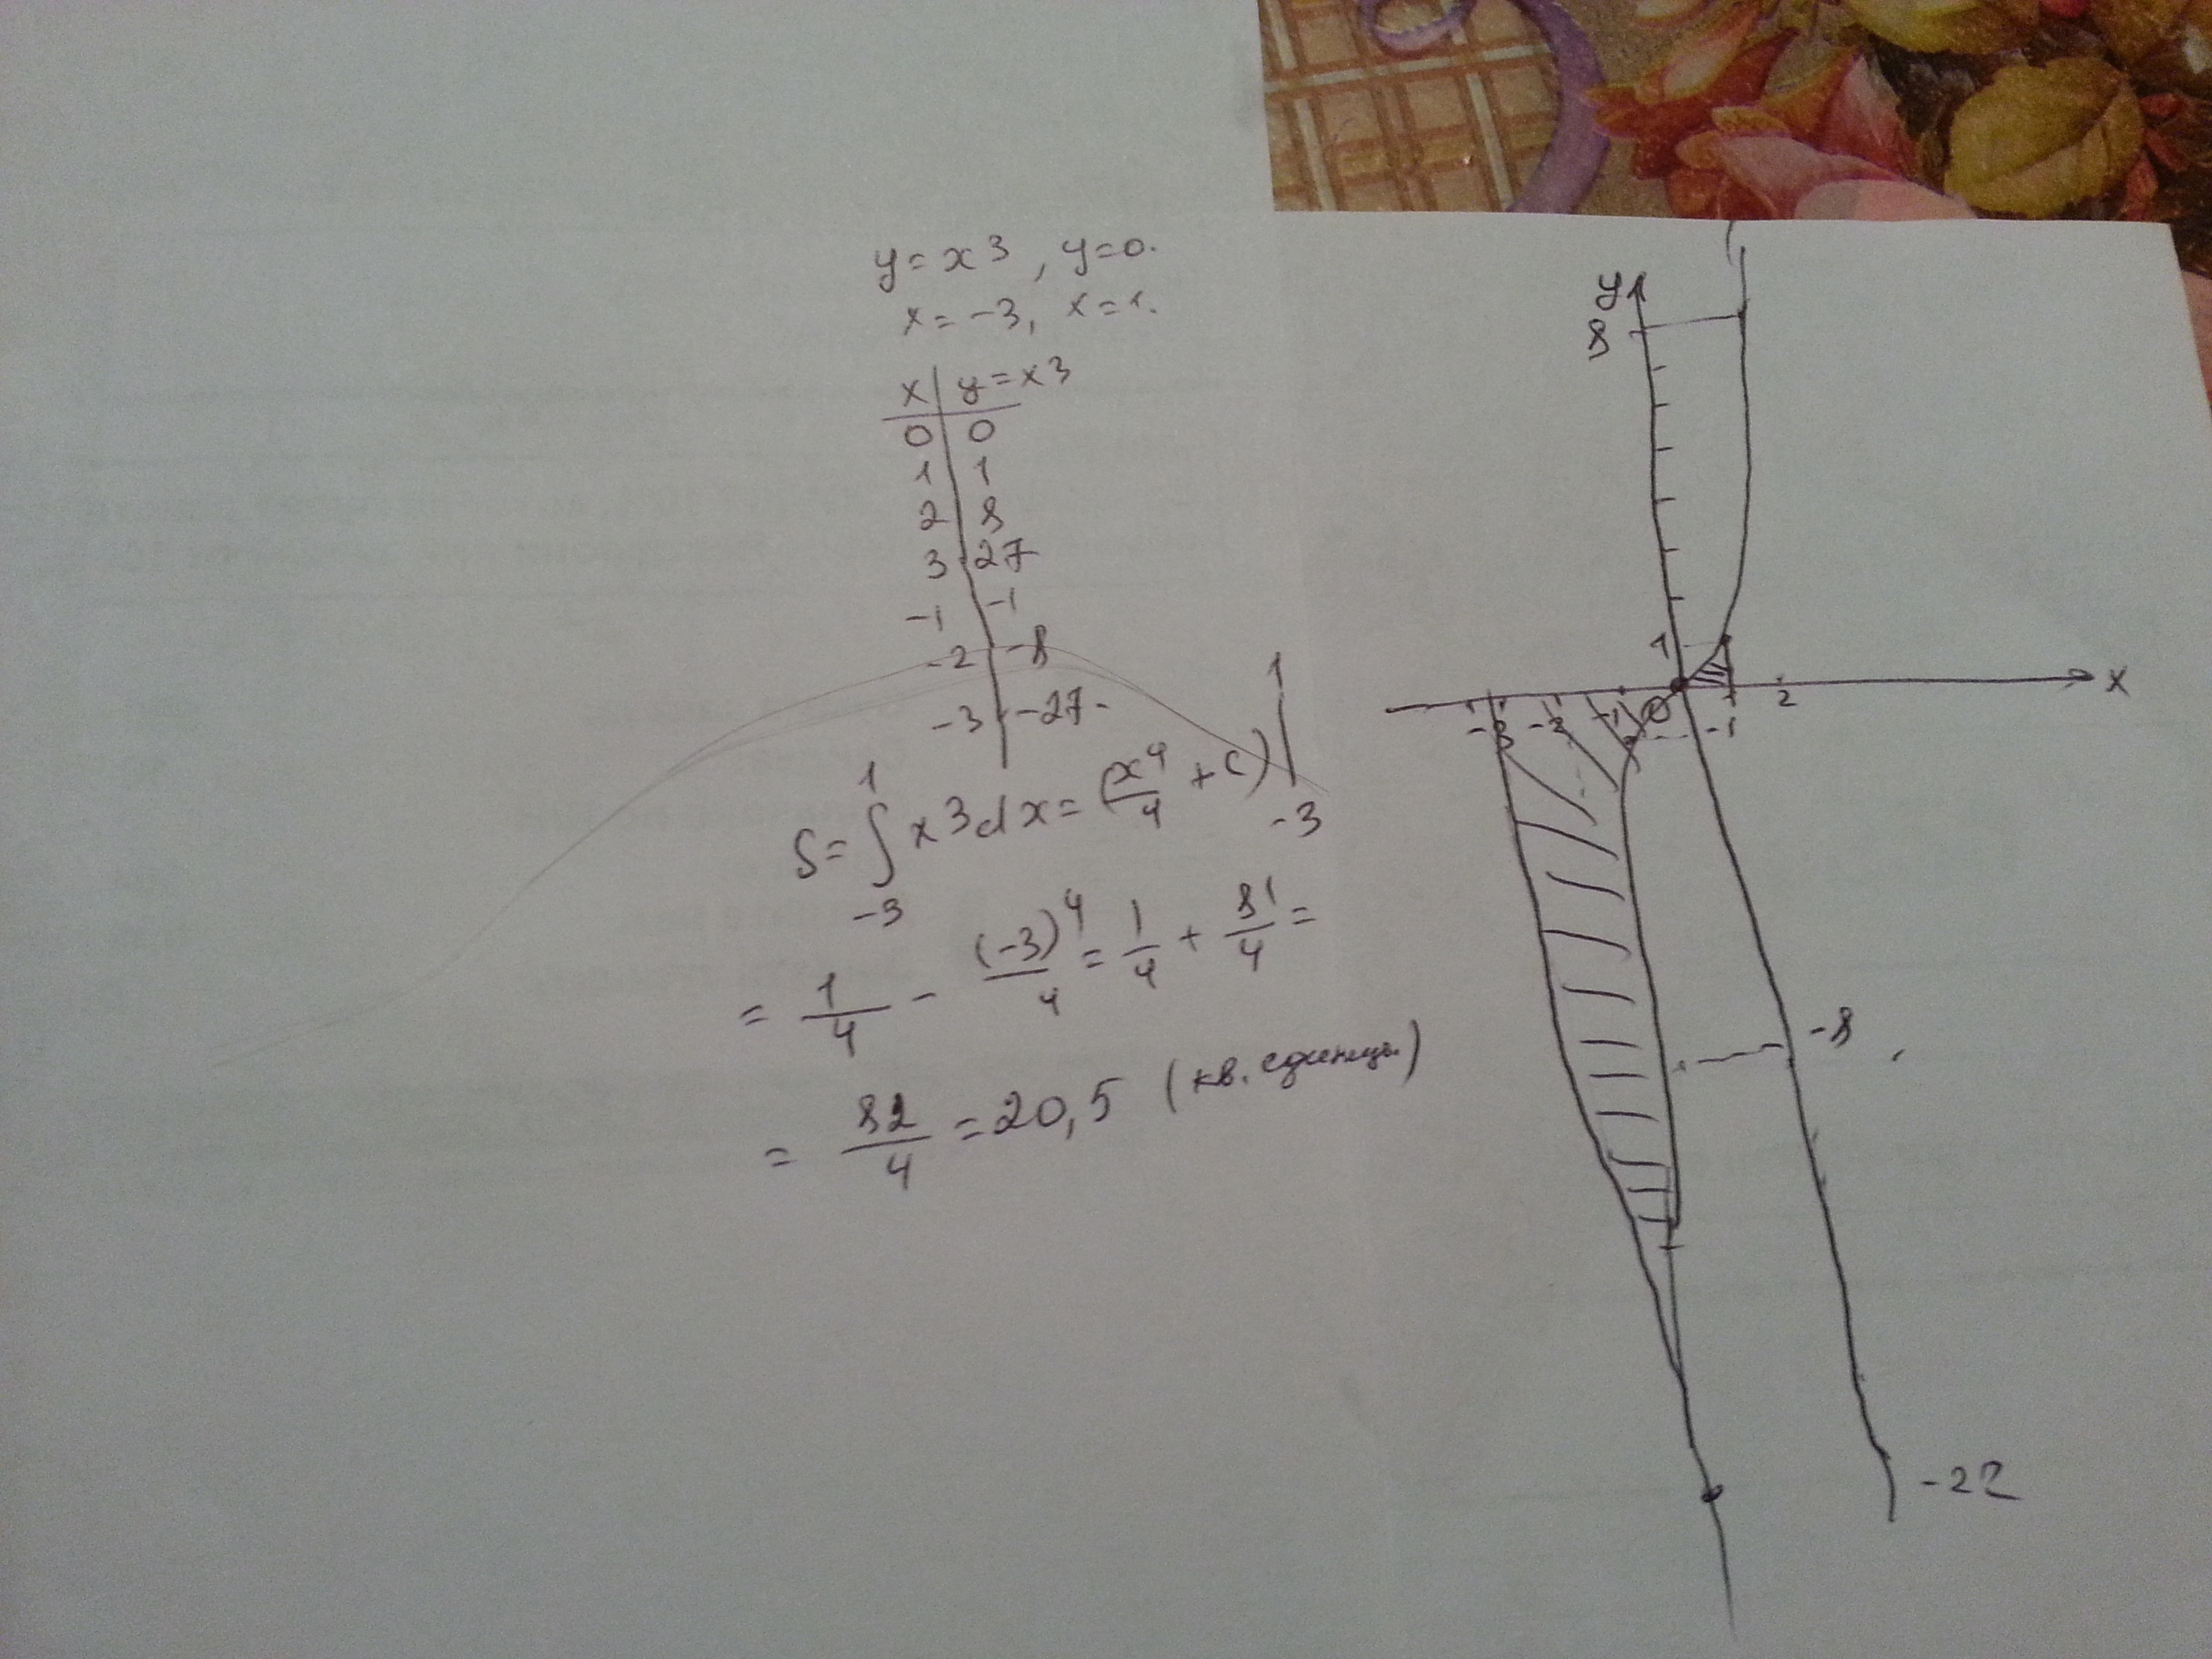 y = x3, y=0.
x = -3, x=1.
x y=x3
0 0
1 1
2 8
3 27
-1 -1
-2 -8
-3 -27.
S = ∫ 1 -3 x3dx = (x4/4 + c) | 1 -3
= 1/4 - (-3)4/4 = 1/4 + 81/4 =
= 82/4 = 20,5 (кв. единицы)
y
8
1
x
-3 -2 -1 0 -1 2
-8
-22